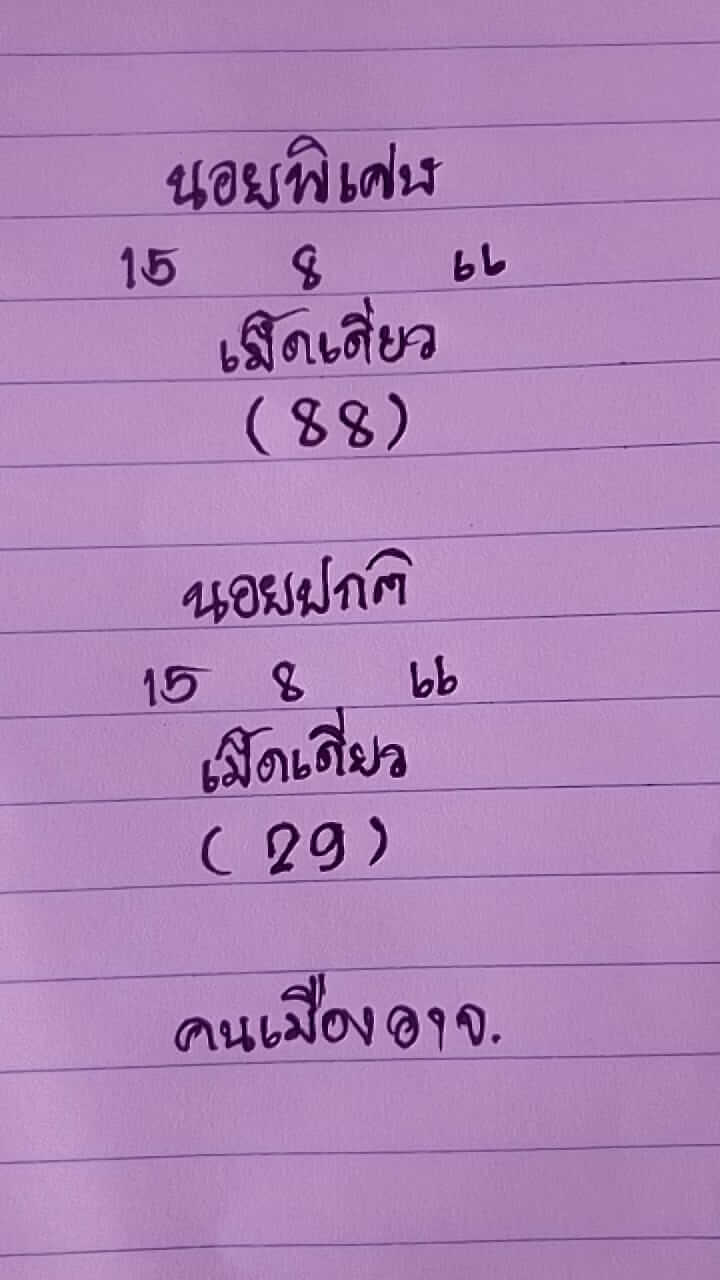 นอยพิเศษ
15 8 66
เม็ดเดียว
(88)
นอยปกติ
15 8 66
เม็ดเดียว
(29)
คนเมืองอาจ.